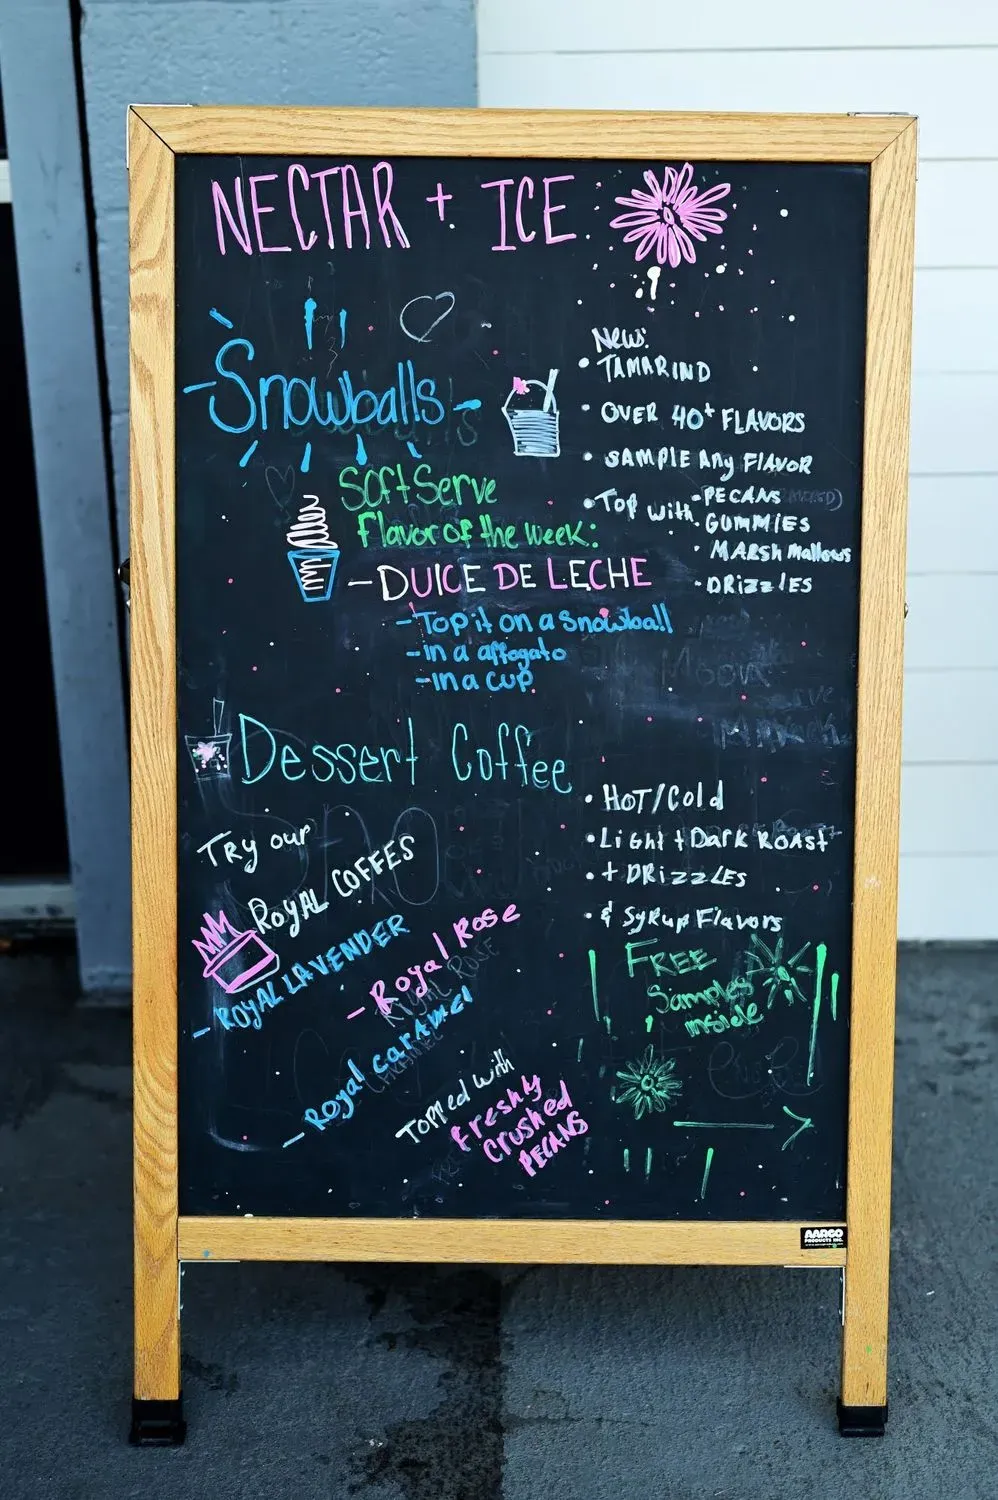 NECTAR + ICE
Snowballs
New:
• TAMARIND
• OVER 40+ FLAVORS
• SAMPLE Any FlAVOR
• TOP with
- PECANS
• GUMMIES
• MARSHmallows
• DRIZZlES
Soft Serve
Flavor of the week:
- DULCE DE LECHE
- Top it on a Snowball
- in a affogato
- in a cup
Dessert Coffee
• HOT/Cold
• Light + Dark Roast
• + DRIZZLES
• & SyRup Flavors
TRy our
ROYAL COFFES
- ROYAL LAVENDER
- Royal Rose
- Royal caramel
TOPPed with
freshly
Crushed
PECANS
FREE
Samples
inside
AARCO
PRODUCTS INC.